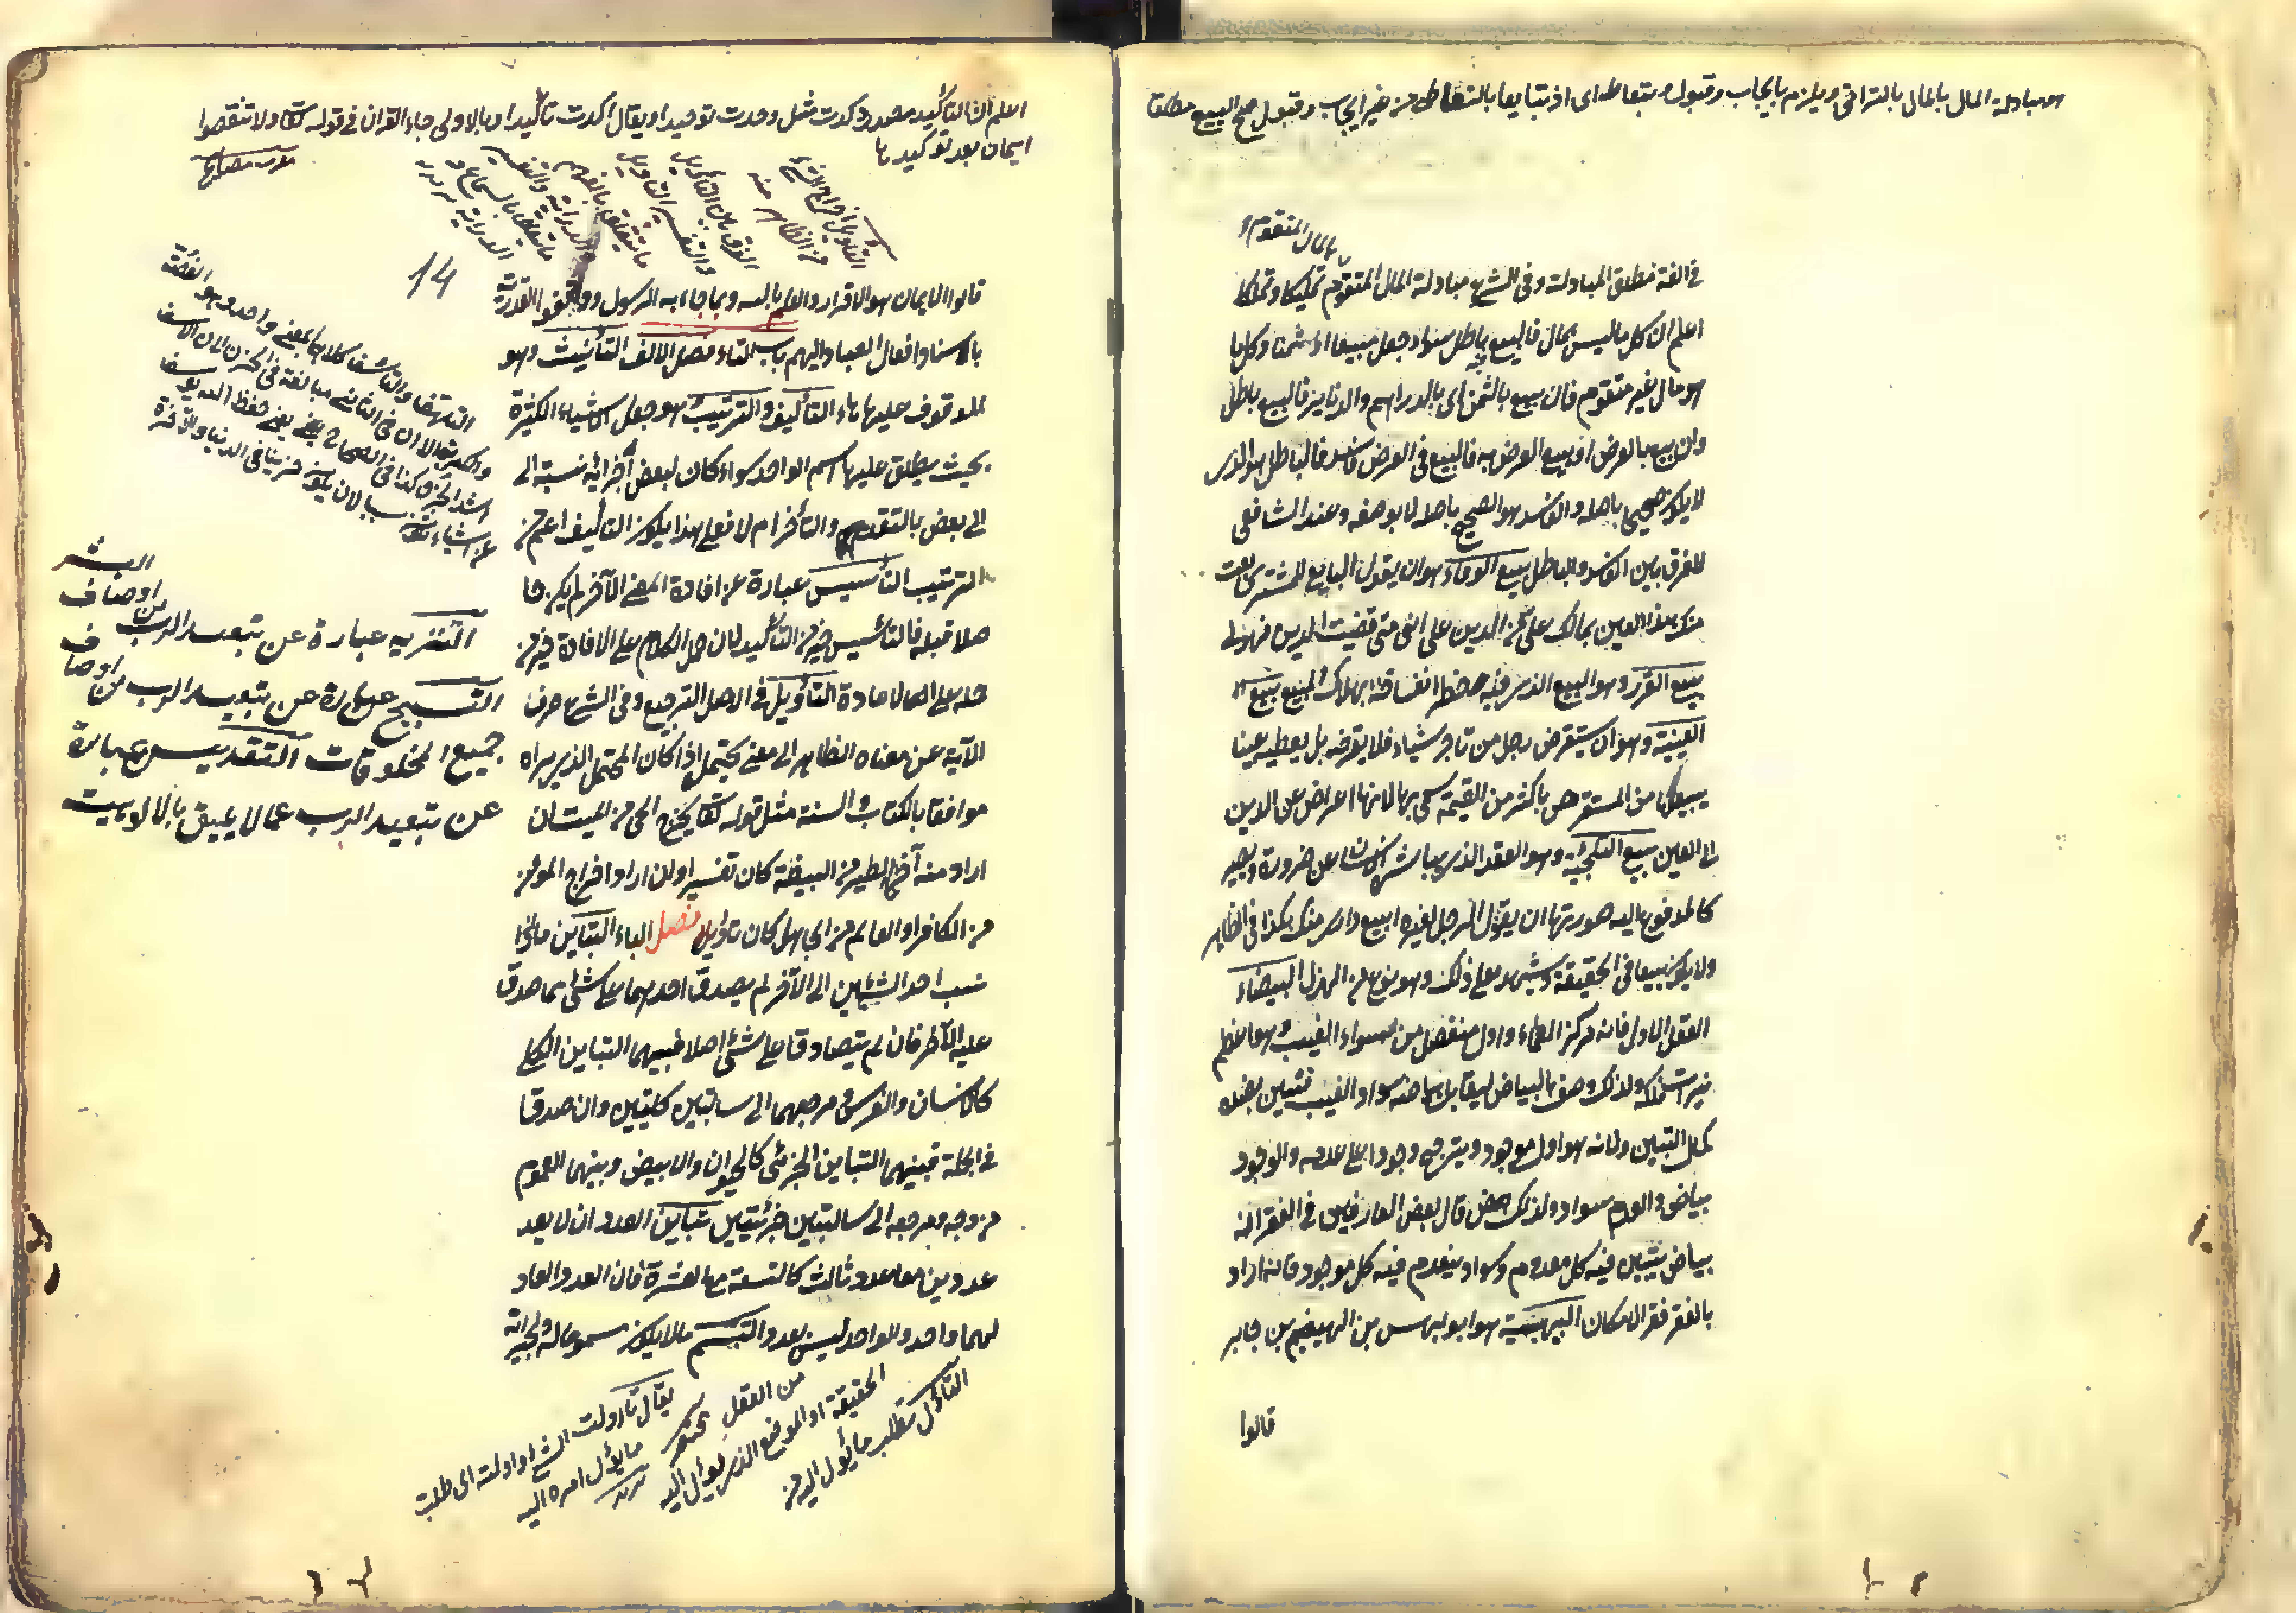 هو مبادلة المال بالمال بالتراضي ويلزم بايجاب وقبول وبتعاط اي اذ تبايعا بالتعاطي من غير ايجاب وقبول صح البيع مطلقا
بالمال المتقوم
في اللغة مطلق المبادلة وفي الشرع مبادلة المال المتقوم تمليكا وتملكا
اعلم ان كل ما ليس بمال فالبيع فيه باطل سواء جعل مبيعا او ثمنا وكل ما
هو مال غير متقوم فان بيع بالثمن اي بالدراهم والدنانير فالبيع باطل
وان بيع بالعرض او بيع العرض به فالبيع في العرض فاسد فالباطل هو الذي
لا يكون صحيحا باصله والفاسد هو الصحيح باصله لا بوصفه وعند الشافعي
لا فرق بين الفاسد والباطل بيع الوفاء هو ان يقول البايع للمشتري بعت
منك هذا العين بمالك علي من الدين على اني متى قضيت الدين فهو لي
بيع الغرر وهو البيع الذي فيه خطر انفساخه بهلاك المبيع بيع
العينة وهو ان يستقرض رجل من تاجر شيئا فلا يقرضه بل يعطيه عينا
يبيعها من المستقرض باكثر من القيمة سمي بها لانها اعراض عن الدين
الى العين بيع التلجئة وهو العقد الذي يباشره الانسان عن ضرورة ويصير
كالمدفوع اليه صورتها ان يقول الرجل لغيره ابيع داري منك بكذا في الظاهر
ولا يكون بيعا في الحقيقة ويشهد على ذلك وهو نوع من الهزل البيضاء
العقل الاول فانه مركز العماء واول منفصل من سواد الغيب وهو اعظم
نيرات فلكه ولذلك وصف بالبياض ليقابل بياضه سواد الغيب فيتبين بضده
كمال التبين ولانه هو اول موجود ويترجح وجوده على عدمه والوجود
بياض والعدم سواد ولذلك قال بعض العارفين في الفقر انه
بياض يتبين فيه كل معدوم وسواد ينعدم فيه كل موجود فانه اراد
بالفقر فقر الامكان البيهسية هو ابو بيهس بن الهيضم بن جابر
قالوا
اعلم ان التاكيد مصدر وكدت مثل وحدت توحيدا ويقال اكدت تاكيدا وبالاولى جاء القران في قوله تعالى ولا تنقضوا
ايمان بعد توكيدها
14
قالوا الايمان هو الاقرار والعلم بالله وبما جاء به الرسول ووافقوا القدرية
باسناد افعال العباد اليهم باب التاء فصل الالف التأنيث وهو
الموقوف عليها هاء التأليف والترتيب هو جعل الاشياء الكثيرة
بحيث يطلق عليها اسم الواحد سواء كان لبعض اجزائه نسبة الى
الى بعض بالتقدم والتأخر ام لا فعلى هذا يكون التأليف اعم من
الترتيب التأسيس عبارة عن افادة المعنى الآخر لم يكن حا
صلا قبله فالتأسيس خير من التأكيد لان حمل الكلام على الافادة خير من
حمله على الاعادة التأويل في الاصل الترجيع وفي الشرع صرف
الآية عن معناه الظاهر الى معنى يحتمله اذا كان المحتمل الذي يراه
موافقا بالكتاب والسنة مثل قوله تعالى يخرج الحي من الميت ان
اراد منه اخراج الطير من البيضة كان تفسيرا وان اراد اخراج المؤمن
من الكافر او العالم من الجاهل كان تأويلا فصل الباء التباين ما اذا
نسب احد الشيئين الى الآخر لم يصدق احدهما على شئ مما صدق
عليه الآخر فان لم يتصادقا على شئ اصلا فبينهما التباين الكلي
كالانسان والفرس ومرجعهما الى سالبتين كليتين وان صدقا
في الجملة فبينهما التباين الجزئي كالحيوان والابيض وبينهما العموم
من وجه ومرجعه الى سالبتين جزئيتين تباين العدد ان لا يعد
عددين معا عدد ثالث كالتسعة مع العشرة فان العدد العاد
لهما واحد والواحد ليس بعدد التبسم ما لا يكون مسموعا له ولجيرانه
التأويل اخراج الشئ
من الظاهر
الفرق بين التأويل
والتفسير التأويل
ما يتعلق بالفهم
والدراية والتفسير
ما يتعلق بالسماع
التلهف والتأسف كلاهما بمعنى واحد وهو
اشد الحزن كذا في الصحاح
التنزيه عبارة عن تبعيد الرب من اوصاف البشر
التسبيح عبارة عن تبعيد الرب من اوصاف
جميع المخلوقات التقديس عبارة
عن تبعيد الرب عما لا يليق بالالوهيت
التأول تطلب ما يؤل اليه من
الحقيقة او الموضع الذي يؤل اليه
من العقل
يقال تأولت الشئ او اولته اي طلبت
ما يؤل امره اليه